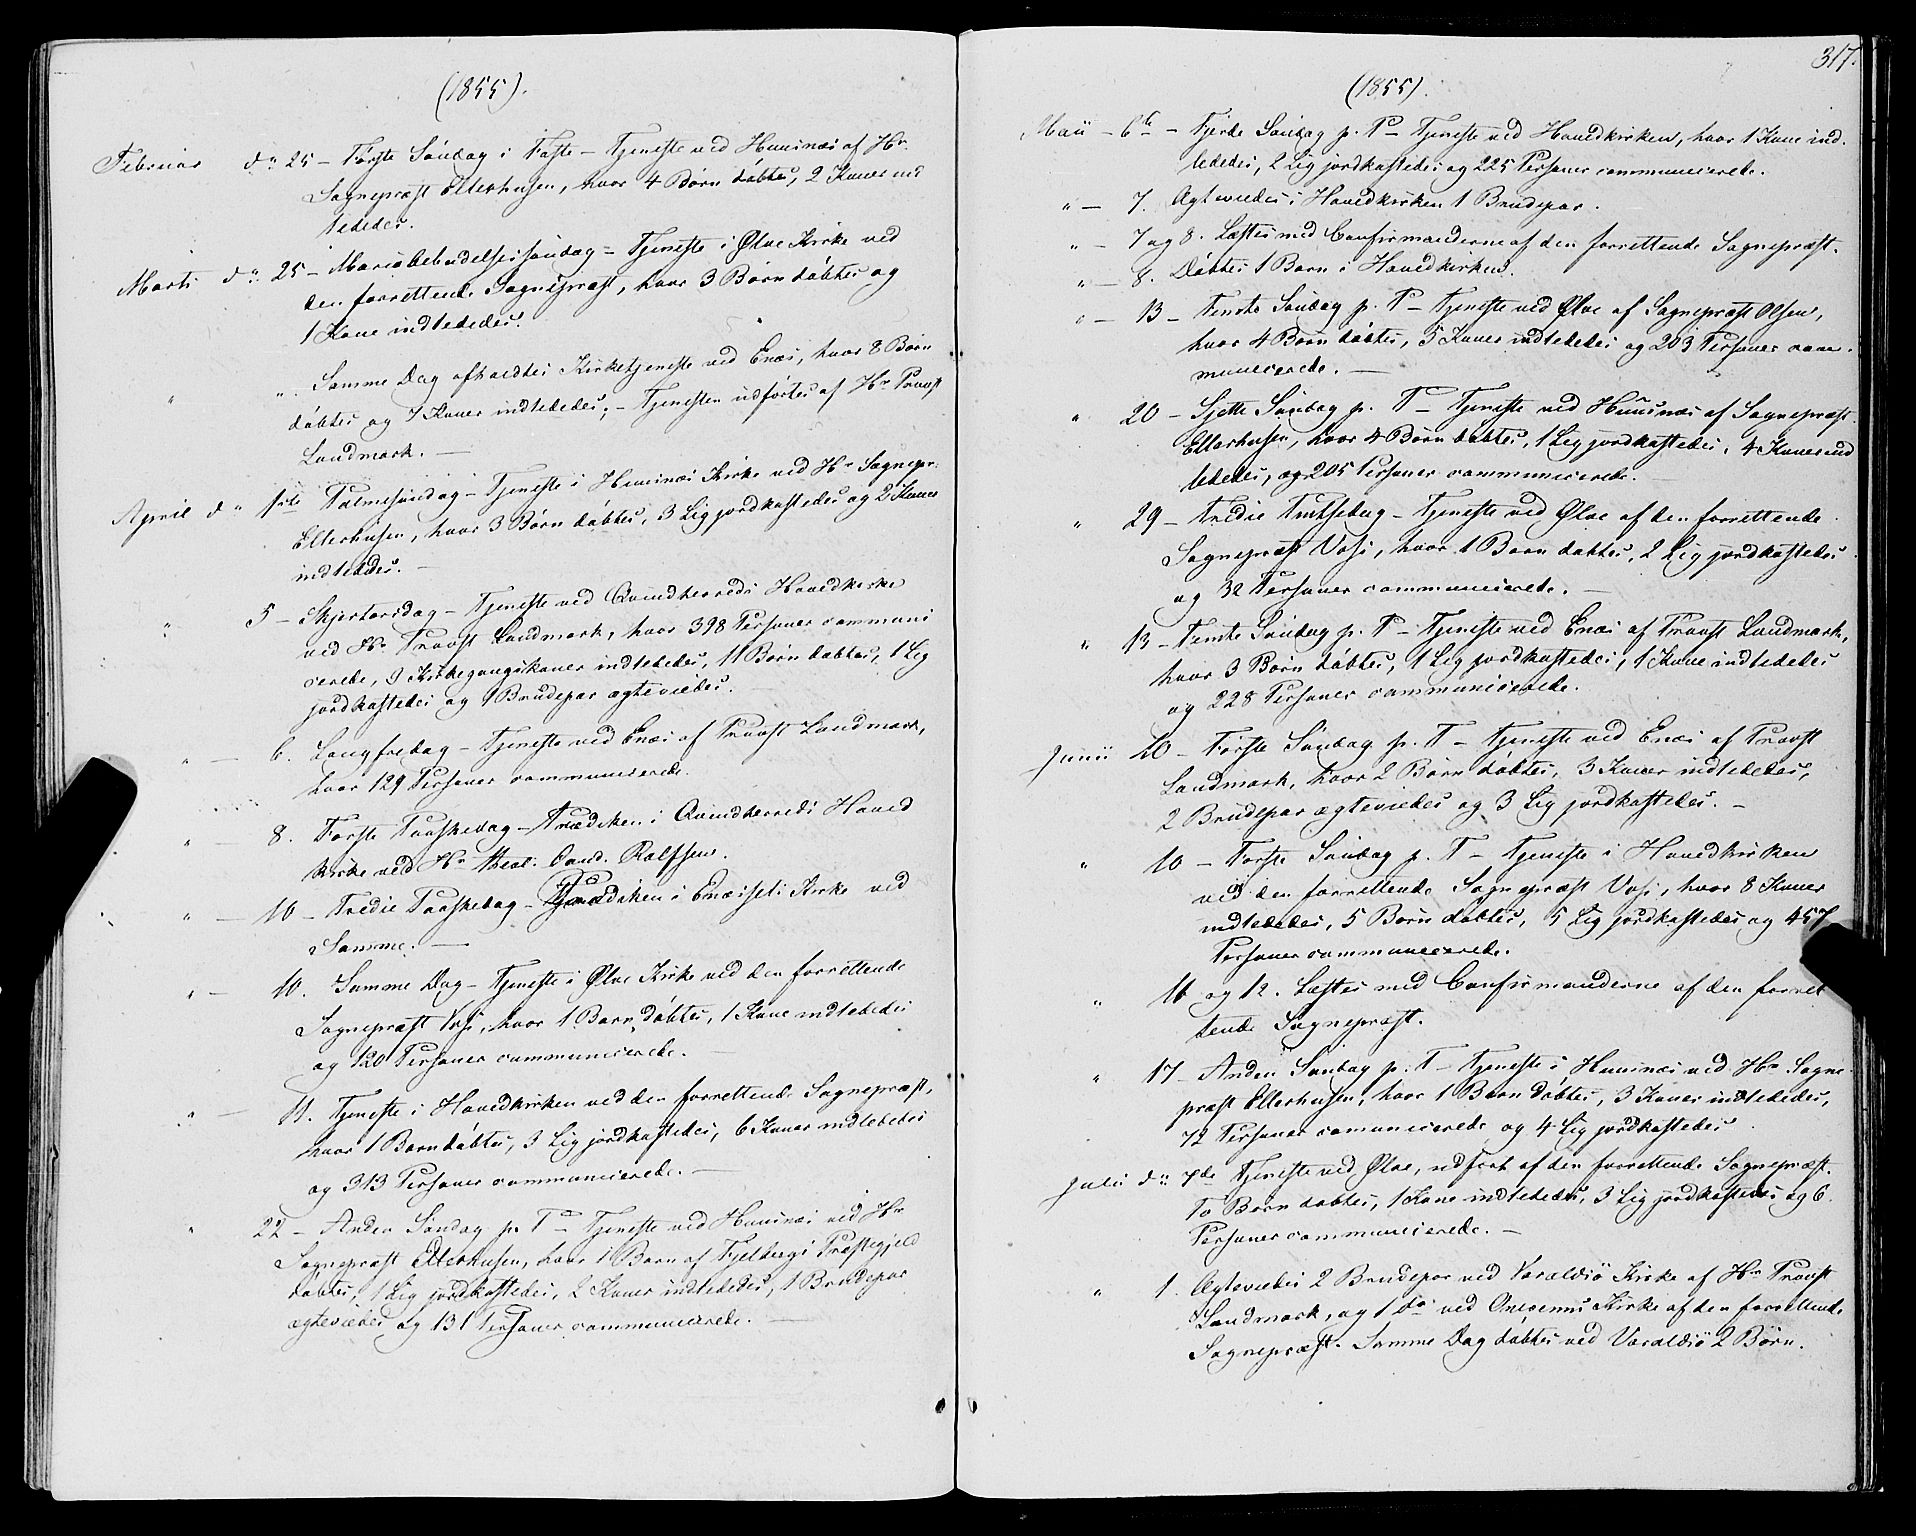 (1855).
Februar d. 25 – Første Søndag i Faste – Tjeneste ved Huusnæs af Hr.
Sognepræst Ellerhusen, hvor 4 Børn døbtes, 2 Koner ind
lededes.
Marts d. 25 – Mariæ Bebudelsessøndag – Tjeneste i Ølve Kirke ved
den forrettende Sognepræst, hvor 3 Børn døbtes og
1 Kone indlededes.
" ". Samme Dag afholdtes Kirketjeneste ved Enæs, hvor 8 Børn
døbtes og 7 Koner indlededes; – Tjenesten udførtes af Hr. Provst
Landmark. –
April d. 1ste Palmesøndag – Tjeneste i Huusnæs Kirke ved Hr. Sognepr.
Ellerhusen, hvor 3 Børn døbtes, 3 Lig jordkastedes og 2 Koner
indlededes. –
" 5 – Skjertorsdag – Tjeneste ved Qvindherreds Hovedkirke
ved Hr. Provst Landmark, hvor 398 Personer communi
cerede, 9 Kirkegangskoner indlededes, 11 Børn døbtes, 1 Lig
jordkastedes og 1 Brudepar ægteviedes. –
" – 6. Langfredag – Tjeneste ved Enæs af Provst Landmark,
hvor 129 Personer communicerede.
" – 8. Første Paaskedag – Prædiken i Qvindherreds Hoved
kirke ved Hr. theol. Cand. Rolfsen.
" – 10 – Tredie Paaskedag – Prædiken i Enæssets Kirke ved
Samme. –
" – 10. Samme Dag – Tjeneste i Ølve Kirke ved den forrettende
Sognepræst Voss, hvor 1 Barn døbtes, 1 Kone indlededes
og 120 Personer communicerede. –
" – 11. Tjeneste i Hovedkirken ved den forrettende Sognepræst,
hvor 1 Barn døbtes, 3 Lig jordkastedes, 6 Koner indlededes
og 313 Personer communicerede. –
" 22 – Anden Søndag p. P – Tjeneste ved Huusnæs ved Hr.
Sognepræst Ellerhusen, hvor 1 Barn af Fjelbergs Præstegjeld
døbtes, 1 Lig jordkastedes, 2 Koner indlededes, 1 Brudepar
ægteviedes og 131 Personer communicerede. –
317.
(1855).
Maii – 6te – Fjerde Søndag p. P – Tjeneste ved Hovedkirken, hvor 1 Kone ind
lededes, 2 Lig jordkastedes og 225 Personer communicerede.
" – 7. Ægteviedes i Hovedkirken 1 Brudepar.
" – 7 og 8. Læstes med Confirmanderne af den forrettende Sognepræst.
" – 8. Døbtes 1 Barn i Hovedkirken.
" – 13 – Femte Søndag p. P – Tjeneste ved Ølve af Sognepræst Olsen,
hvor 4 Børn døbtes, 5 Koner indlededes og 203 Personer com
municerede. –
" 20 – Sjette Søndag p. P – Tjeneste ved Huusnæs af Sognepræst
Ellerhusen, hvor 4 Børn døbtes, 1 Lig jordkastedes, 4 Koner ind
lededes, og 205 Personer communicerede. –
" 29 – Tredie Pintsedag – Tjeneste ved Ølve af den forrettende
Sognepræst Voss, hvor 1 Barn døbtes, 2 Lig jordkastedes
og 32 Personer communicerede. –
" 13 – Femte Søndag p. P – Tjeneste ved Enæs af Provst Landmark,
hvor 3 Børn døbtes, 1 Lig jordkastedes, 1 Kone indlededes
og 228 Personer communicerede.
Junii 10 – Første Søndag p. T – Tjeneste ved Enæs af Provst
Landmark, hvor 2 Børn døbtes, 3 Koner indlededes,
2 Brudepar ægteviedes og 3 Lig jordkastedes. –
" 10 – Første Søndag p. T – Tjeneste i Hovedkirken
ved den forrettende Sognepræst Voss, hvor 8 Koner
indlededes, 5 Børn døbtes, 5 Lig jordkastedes og 457
Personer communicerede.
" 11 og 12. Læstes med Confirmanderne af den forret
tende Sognepræst.
" 17 – Anden Søndag p. T – Tjeneste i Huusnæs ved Hr. Sogne
præst Ellerhusen, hvor 1 Barn døbtes, 3 Koner indlededes,
72 Personer communicerede og 4 Lig jordkastedes.
Julii d. 7de Tjeneste ved Ølve, udført af den forrettende Sognepræst.
To Børn døbtes, 1 Kone indlededes, 3 Lig jordkastedes og 6
Personer communicerede. –
" 1. Ægteviedes 2 Brudepar ved Varaldsö Kirke af Hr. Provst
Landmark, og 1 do ved Kirke af den forrettende
Sognepræst. Samme Dag døbtes ved Varaldsö 2 Børn.